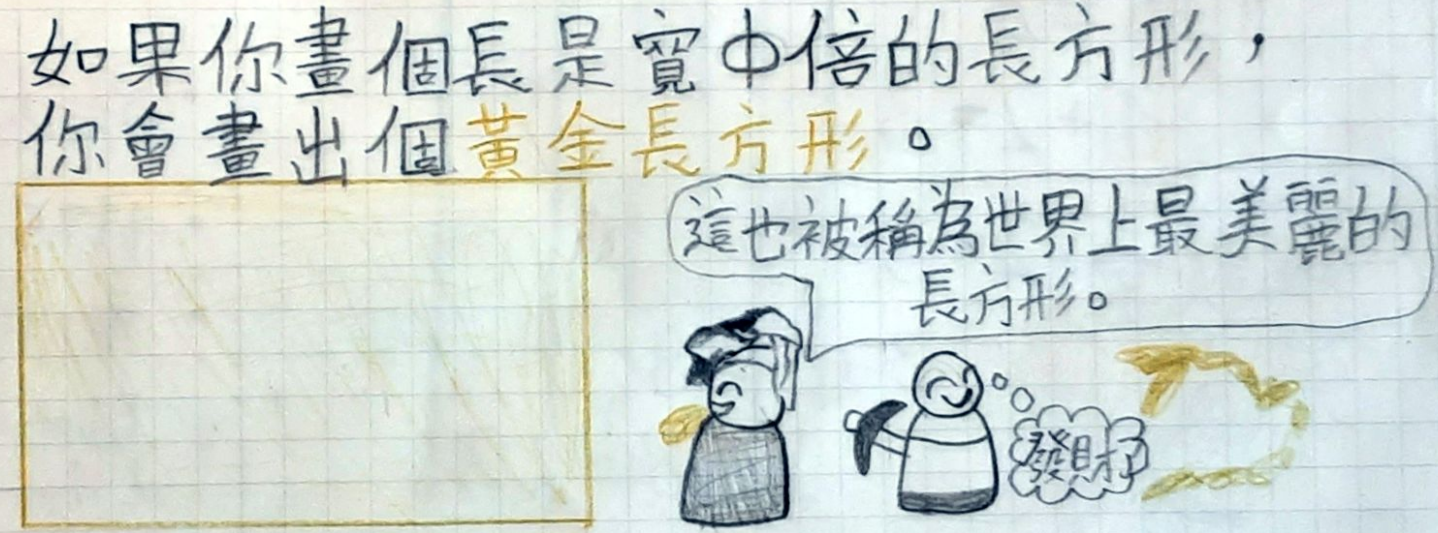 如果你畫個長是寬Φ倍的長方形，
你會畫出個黃金長方形。
這也被稱為世界上最美麗的
長方形。
發財了